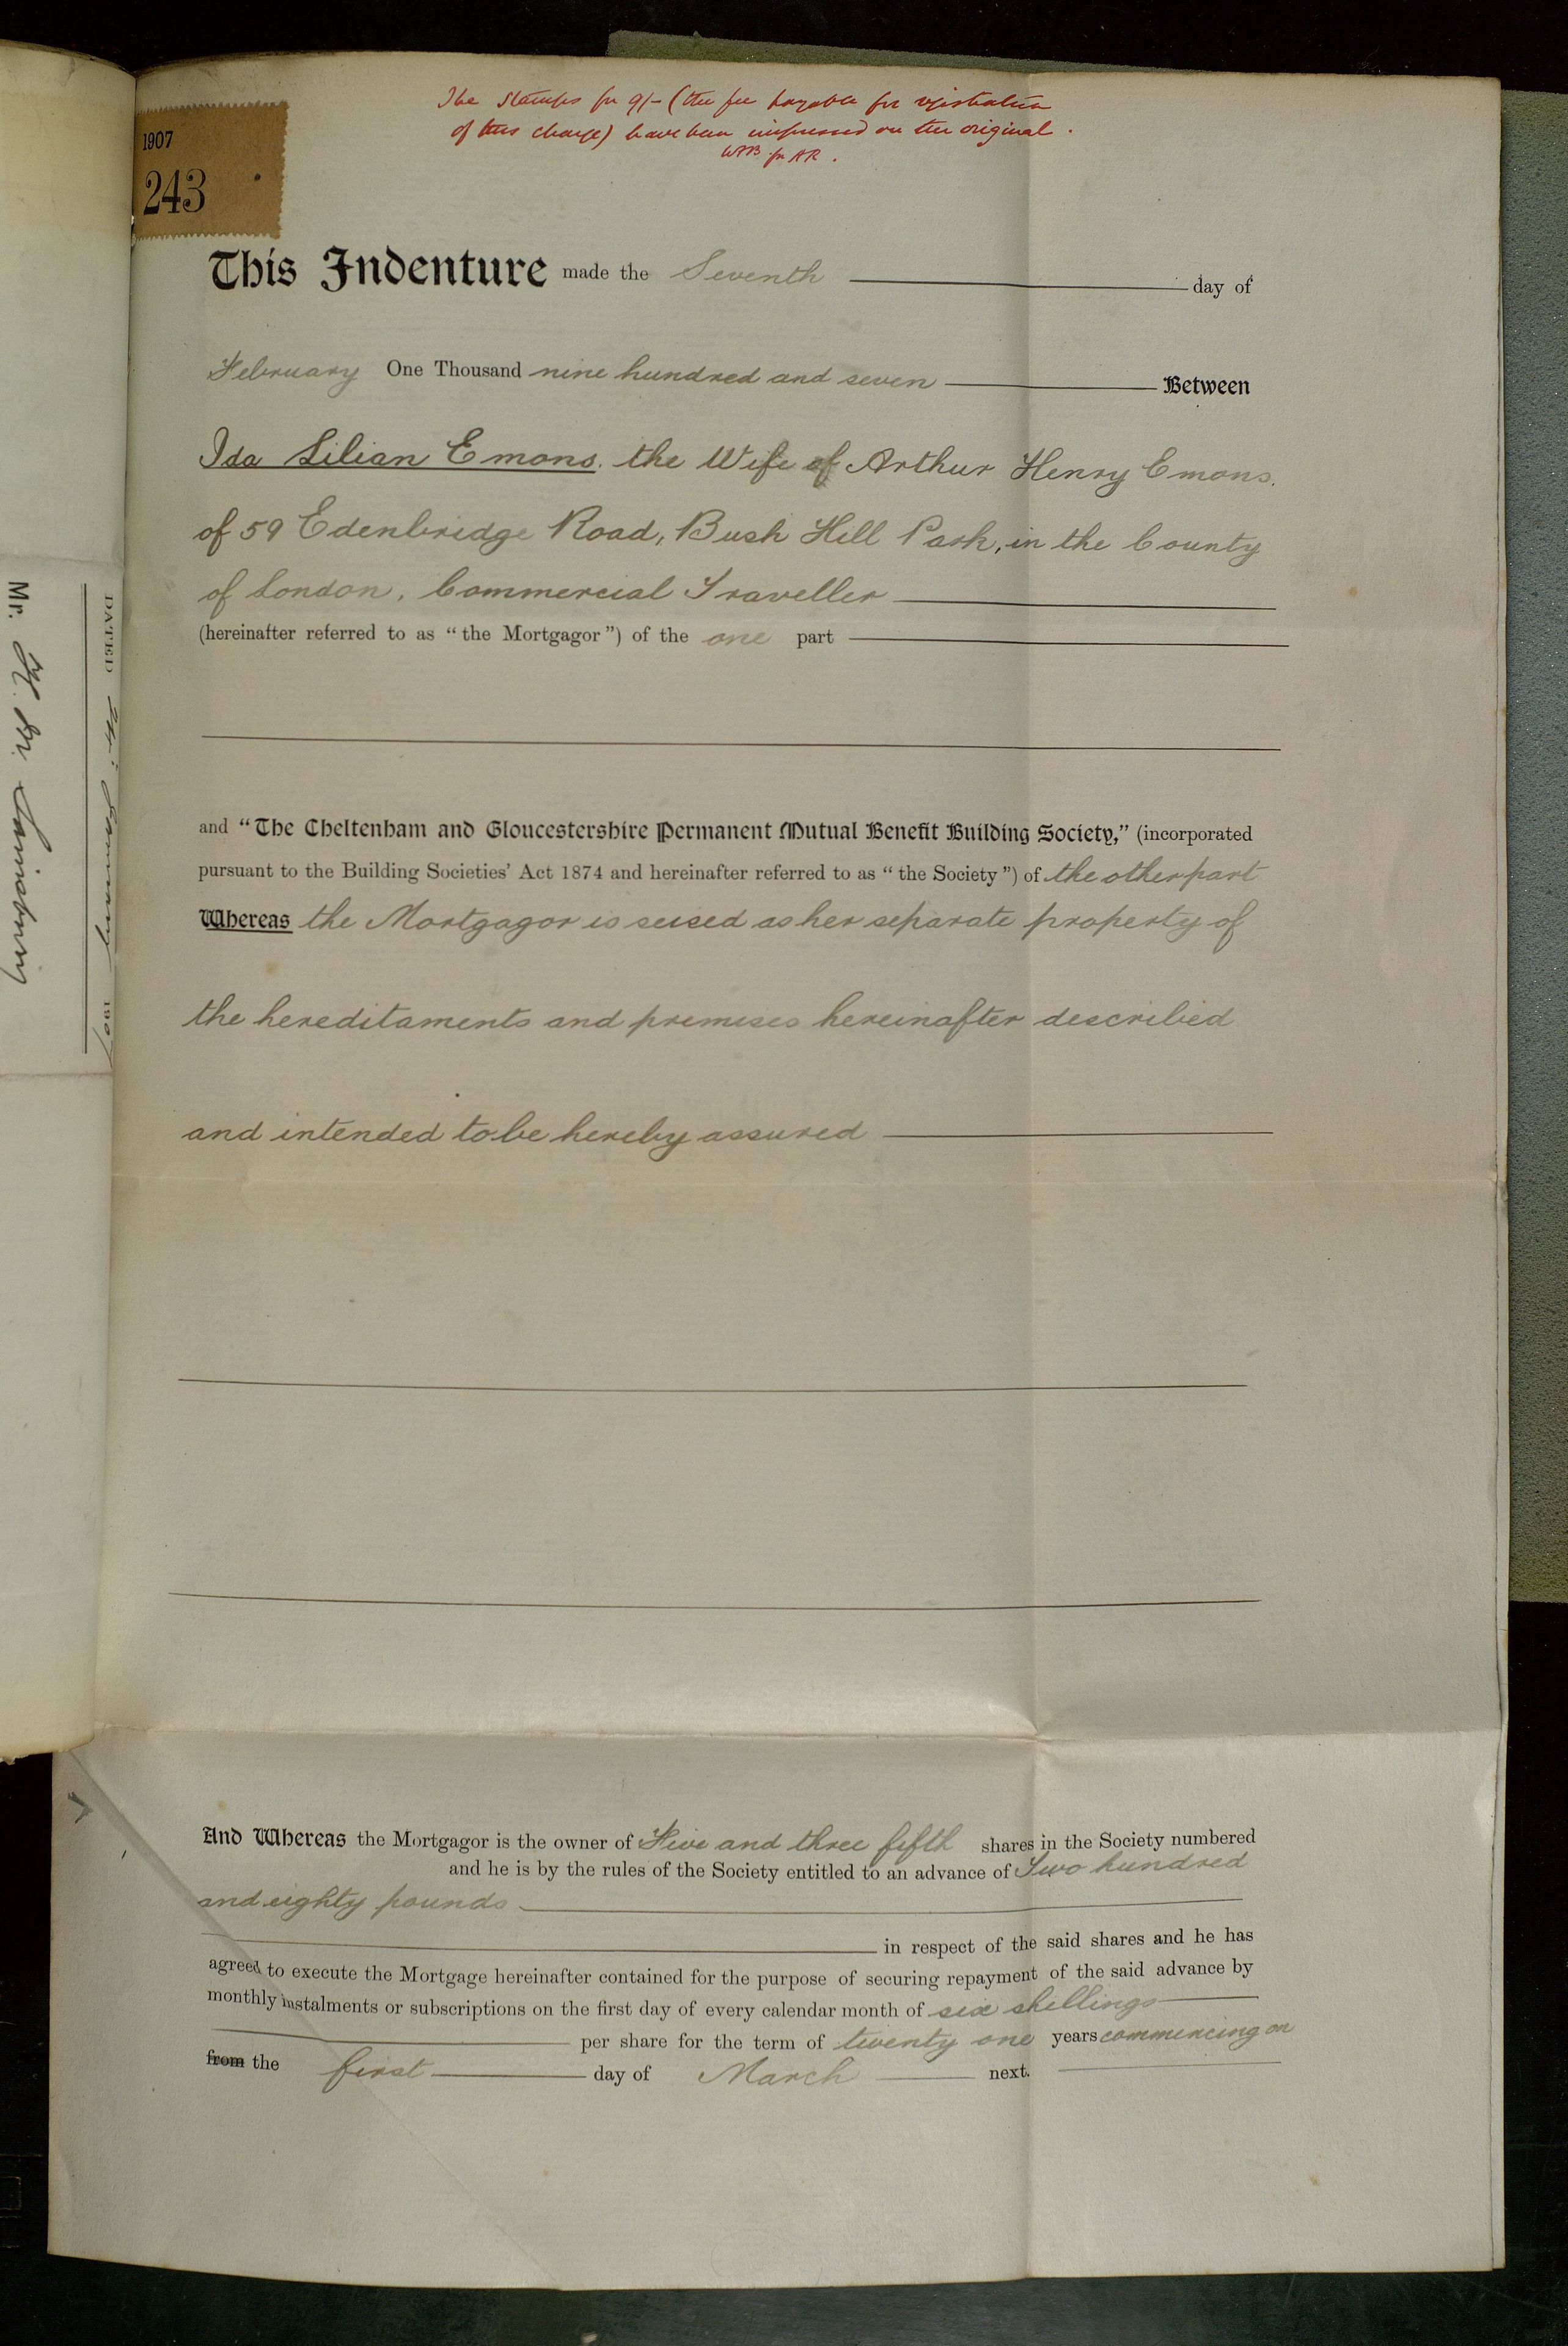 The Stamps for 9/- (the fee payable for registration
of this charge) have been impressed on the original.
WAB for AR.
1907
243
This Indenture made the Seventh day of
February One Thousand nine hundred and seven Between
Ida Lilian Emons. the Wife of Arthur Henry Emons.
of 59 Edenbridge Road, Bush Hill Park, in the County
of London, Commercial Traveller
(hereinafter referred to as "the Mortgagor") of the one part
and "The Cheltenham and Gloucestershire Permanent Mutual Benefit Building Society," (incorporated
pursuant to the Building Societies' Act 1874 and hereinafter referred to as "the Society") of the other part
Whereas the Mortgagor is seised as her separate property of
the hereditaments and premises hereinafter described
and intended to be hereby assured
And Whereas the Mortgagor is the owner of Five and three fifth shares in the Society numbered
and he is by the rules of the Society entitled to an advance of Two hundred
and eighty pounds
in respect of the said shares and he has
agreed to execute the Mortgage hereinafter contained for the purpose of securing repayment of the said advance by
monthly instalments or subscriptions on the first day of every calendar month of six shillings
per share for the term of twenty one years commencing on
from the first day of March next.
DATED January 1907
Mr.